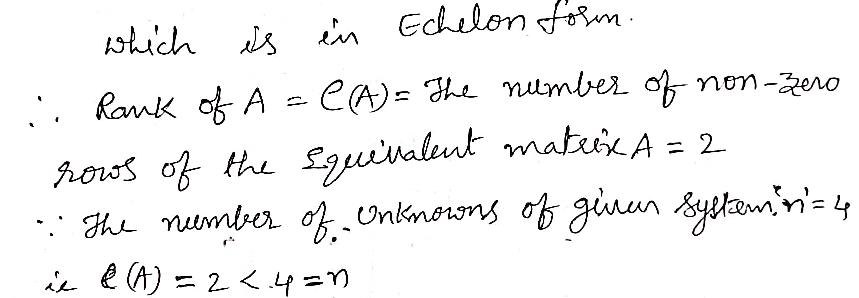 which is in Echelon form.
∴ Rank of A = ρ(A) = The number of non-zero
rows of the Equivalent matrix A = 2
∵ The number of unknowns of given system 'n' = 4
ie ρ(A) = 2 < 4 = n